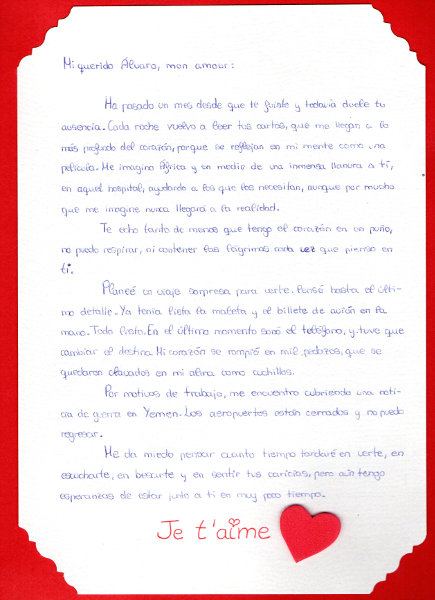 Mi querido Álvaro, mon amour:
Ha pasado un mes desde que te fuiste y todavía duele tu
ausencia. Cada noche vuelvo a leer tus cartas, que me llegan a lo
más profundo del corazón, porque se reflejan en mi mente como una
película. Me imagino África y en medio de una inmensa llanura a ti,
en aquel hospital, ayudando a los que los necesitan, aunque por mucho
que me imagine nunca llegará a la realidad.
Te echo tanto de menos que tengo el corazón en un puño,
no puedo respirar, ni contener las lágrimas cada vez que pienso en
ti.
Planeé un viaje sorpresa para verte. Pensé hasta el últi-
mo detalle. Ya tenía lista la maleta y el billete de avión en la
mano. Todo listo. En el último momento sonó el teléfono, y tuve que
cambiar el destino. Mi corazón se rompió en mil pedazos, que se
quedaron clavados en mi alma como cuchillos.
Por motivos de trabajo, me encuentro cubriendo una noti-
cia de guerra en Yemen. Los aeropuertos están cerrados y no puedo
regresar.
Me da miedo pensar cuanto tiempo tardaré en verte, en
escucharte, en besarte y en sentir tus caricias, pero aún tengo
esperanzas de estar junto a ti en muy poco tiempo.
Je t'aime